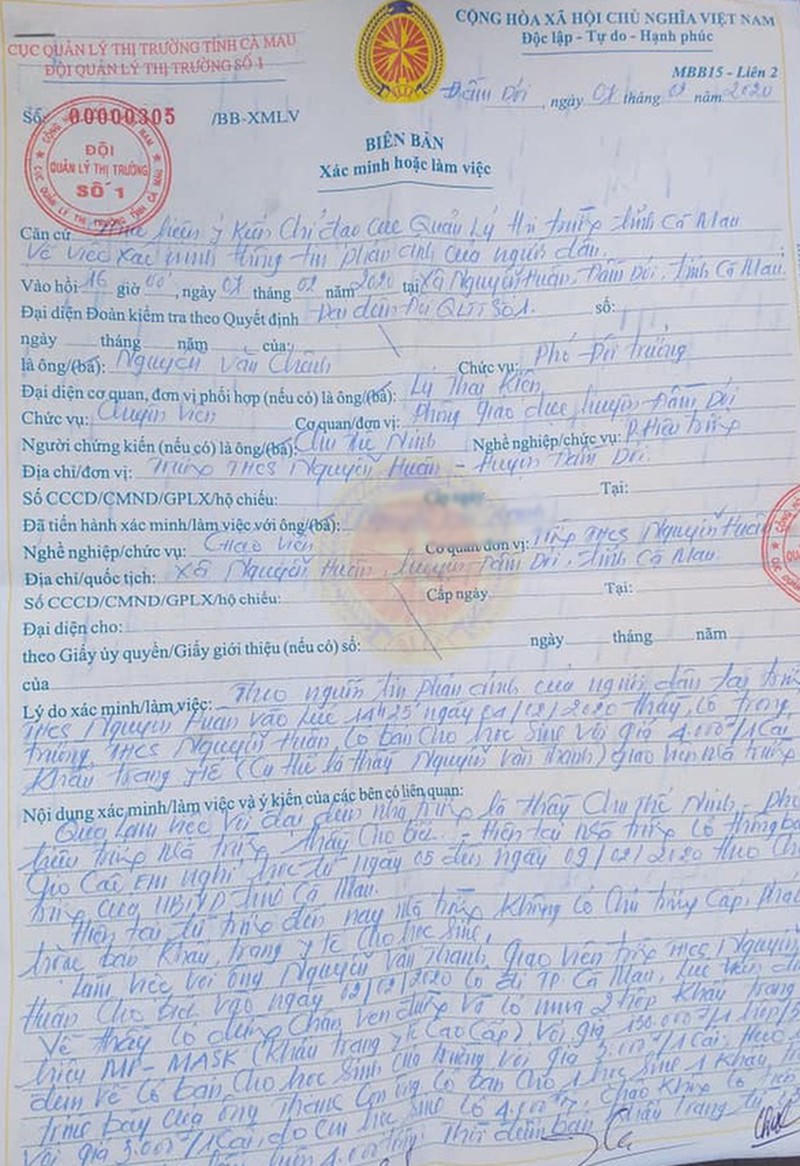 CỤC QUẢN LÝ THỊ TRƯỜNG TỈNH CÀ MAU
ĐỘI QUẢN LÝ THỊ TRƯỜNG SỐ 1
CỘNG HÒA XÃ HỘI CHỦ NGHĨA VIỆT NAM
Độc lập - Tự do - Hạnh phúc
MBB15 - Liên 2
Đầm Dơi, ngày 07 tháng 02 năm 2020
Số: 00000305 /BB-XMLV
ĐỘI
QUẢN LÝ THỊ TRƯỜNG
SỐ 1
CỤC QUẢN LÝ THỊ TRƯỜNG TỈNH CÀ MAU
BIÊN BẢN
Xác minh hoặc làm việc
Căn cứ Thực hiện ý kiến chỉ đạo Cục Quản Lý thị trường tỉnh Cà Mau
Về việc xác minh thông tin phản ánh của người dân.
Vào hồi 16 giờ 00, ngày 07 tháng 02 năm 2020 tại Xã Nguyễn Huân, Đầm Dơi, tỉnh Cà Mau.
Đại diện Đoàn kiểm tra theo Quyết định Đại diện Đội QLTT Số 1. số:
ngày tháng năm của:
là ông/(bà): Nguyễn Văn Chánh Chức vụ: Phó Đội trưởng
Đại diện cơ quan, đơn vị phối hợp (nếu có) là ông/(bà): Lý Thái Kiên
Chức vụ: Chuyên viên Cơ quan/đơn vị: Phòng giáo dục huyện Đầm Dơi
Người chứng kiến (nếu có) là ông/(bà): Chu Thế Ninh Nghề nghiệp/chức vụ: P. Hiệu trưởng
Địa chỉ/đơn vị: Trường THCS Nguyễn Huân - Huyện Đầm Dơi.
Số CCCD/CMND/GPLX/hộ chiếu: Cấp ngày Tại:
Đã tiến hành xác minh/làm việc với ông/(bà):
Nghề nghiệp/chức vụ: Giáo viên Cơ quan đơn vị: Trường THCS Nguyễn Huân
Địa chỉ/quốc tịch: Xã Nguyễn Huân, huyện Đầm Dơi, tỉnh Cà Mau.
Số CCCD/CMND/GPLX/hộ chiếu: Cấp ngày Tại:
Đại diện cho:
theo Giấy ủy quyền/Giấy giới thiệu (nếu có) số: ngày tháng năm
của
Lý do xác minh/làm việc: Theo nguồn tin phản ánh của người dân tại trường
THCS Nguyễn Huân vào lúc 14h25 ngày 04/02/2020 thấy, có trong
trường THCS Nguyễn Huân, có bán cho học sinh với giá 4.000đ/1 cái
Khẩu trang y tế (cụ thể là thầy Nguyễn Văn Thanh) giáo viên nhà trường
Nội dung xác minh/làm việc và ý kiến của các bên có liên quan:
Qua làm việc với đại diện nhà trường là thầy Chu Thế Ninh - phó
hiệu trưởng nhà trường thầy cho biết - Hiện tại nhà trường có thông báo
cho các em nghỉ học từ ngày 05 đến ngày 09/02/2020 theo
của UBND tỉnh Cà Mau.
Hiện tại từ trước đến nay nhà trường không có chủ trương cấp, phát
hoặc bán khẩu trang y tế cho học sinh.
Làm việc với ông Nguyễn Văn Thanh, giáo viên trường THCS Nguyễn
Huân cho biết vào ngày 02/02/2020 có đi TP Cà Mau, lúc trên
Về thầy có dừng chân ven đường và có mua 2 hộp khẩu trang
hiệu MP-MASK (Khẩu trang y tế cao cấp) với giá 150.000đ/1 hộp/5
đem về có bán cho học sinh của trường với giá 3.000đ/1 cái, theo
trình bày của ông Thanh còn ông có bán cho 1 học sinh 1 khẩu
với giá 3.000đ/1 cái, do em học sinh có 4.000đ,
4.000đ Thời điểm bán khẩu trang từ